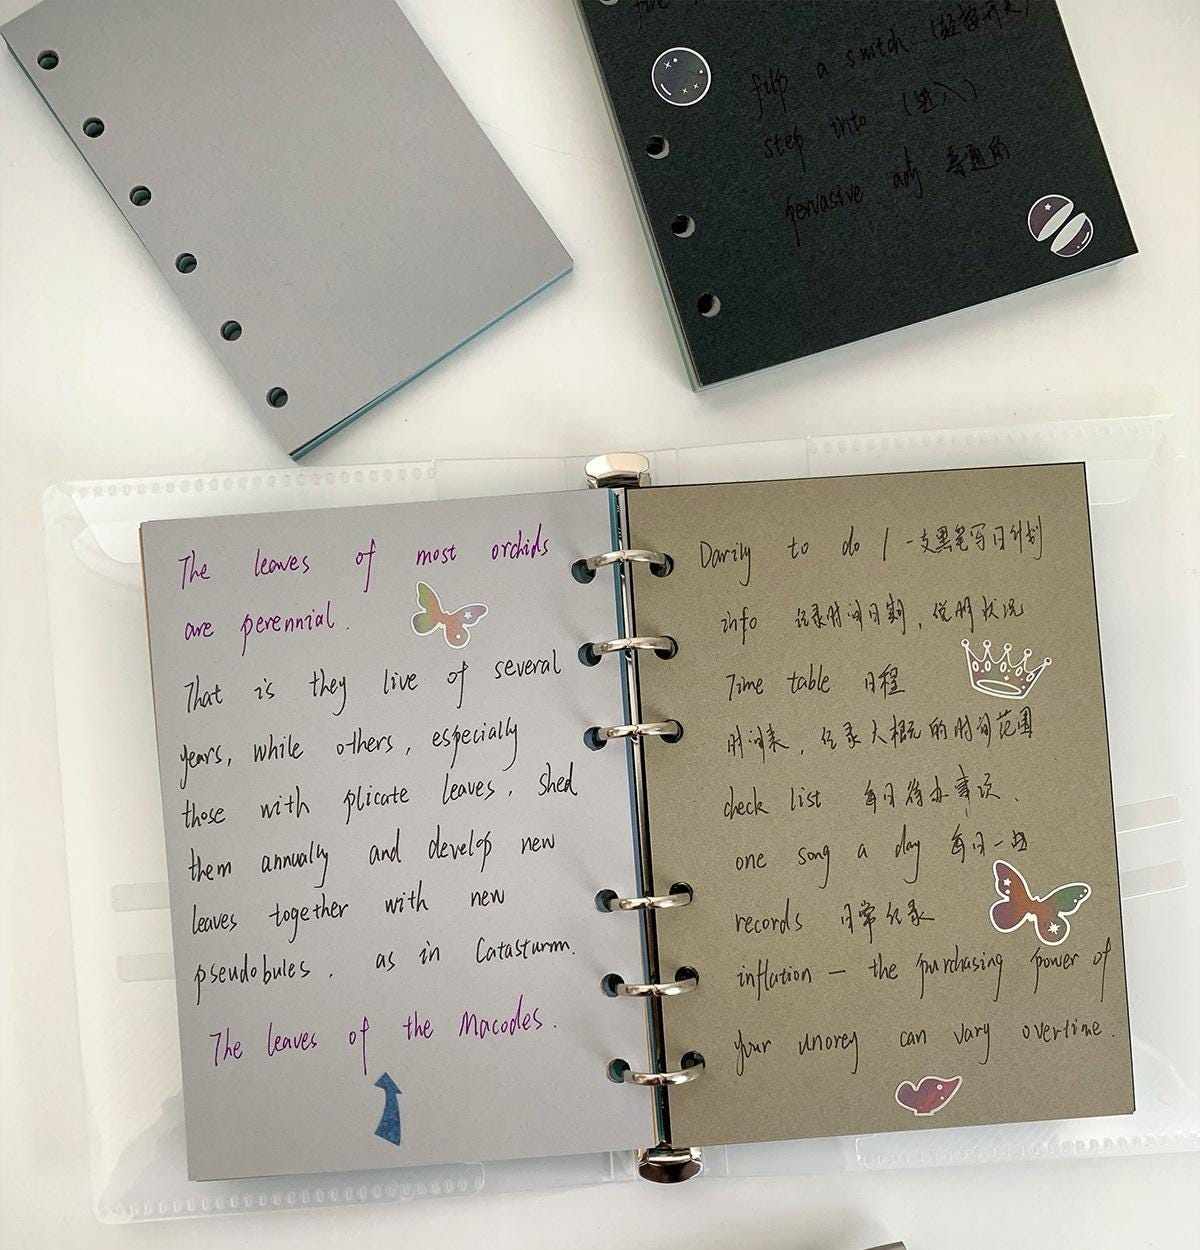 flip a switch (轻按开关)
step into (进入)
pervasive adj 普通的
The leaves of most orchids
are perennial.
That is they live of several
years, while others, especially
those with plicate leaves, shed
them annually and develop new
leaves together with new
pseudobules, as in Catasturm.
The leaves of the Macodes.
Darily to do / 一支黑笔写日计划
info 记录时间日期, 说明状况
Time table 日程
时间表, 记录大概的时间范围
check list 每日待办事项、
one song a day 每日一曲
records 日常记录
inflation — the purchasing power of
your unorey can vary overtime.